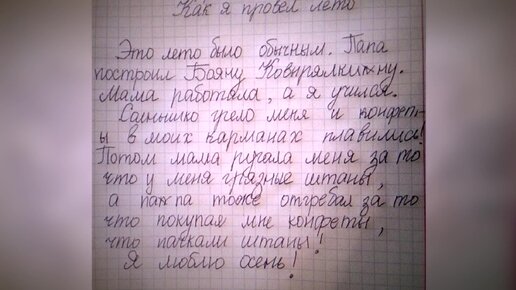 Как я провел лето
Это лето было обычным. Папа
построил Бояну Ковирялкину.
Мама работала, а я училая.
Солнышко грело меня и конфет-
ы в моих карманах плавились!
Потом мама ругала меня за то
что у меня грязные штаны,
а папа тоже отгребал за то
что покупая мне конфеты,
что пачкали штаны!
Я люблю осень!